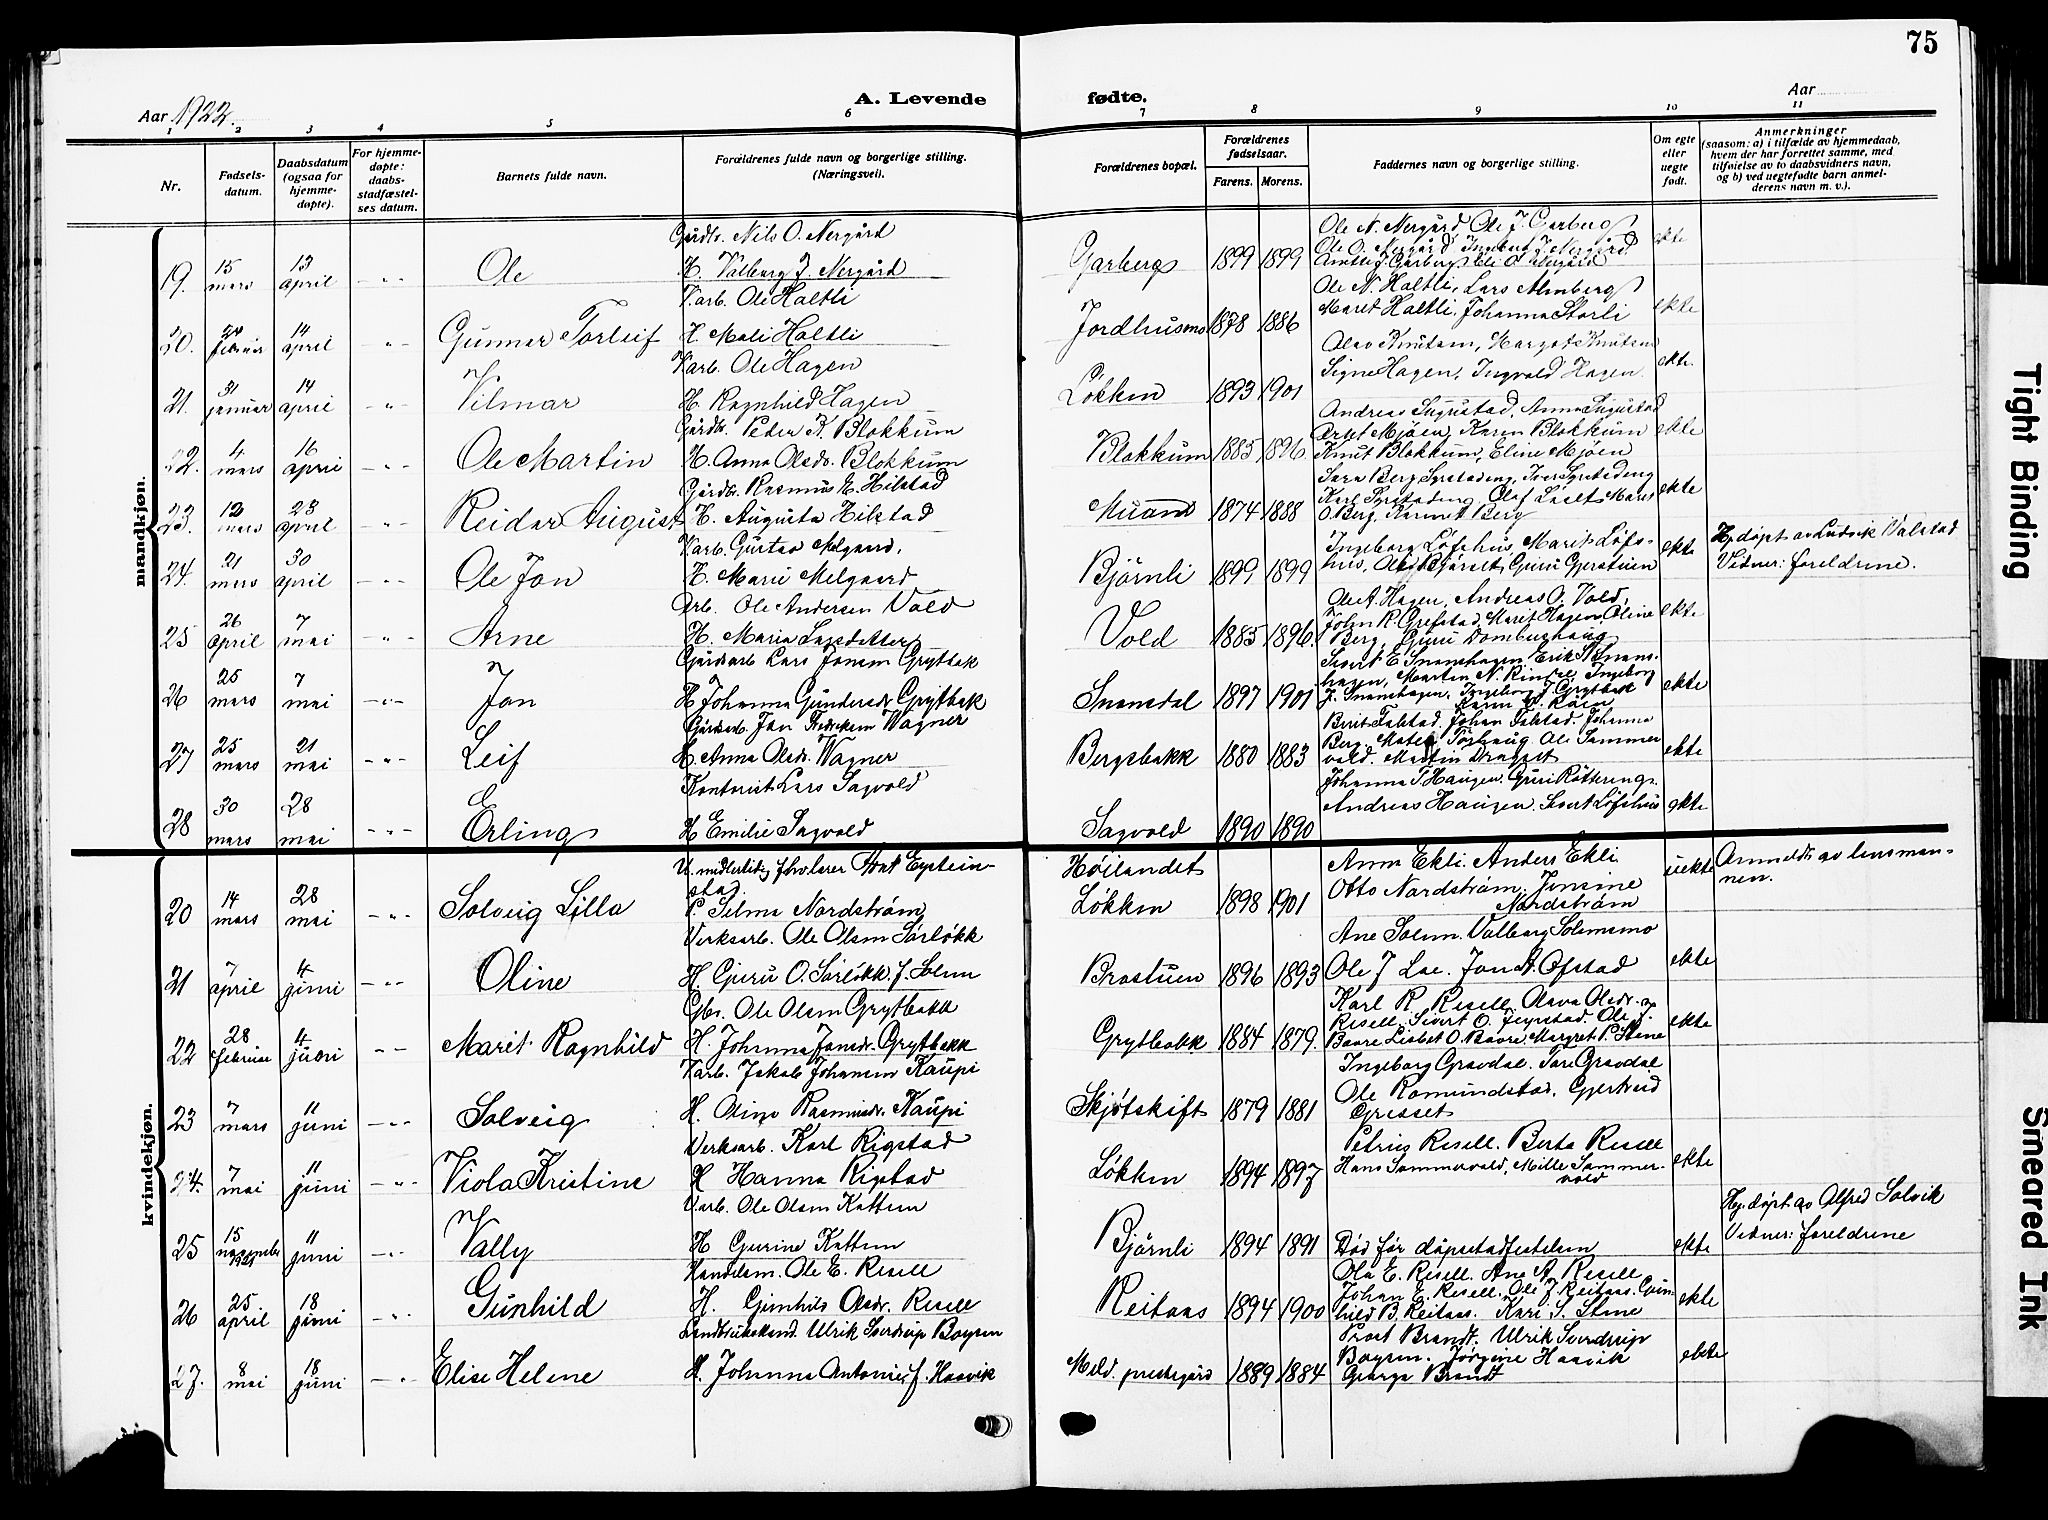 75
Aar 1922.
A. Levende fødte.
Aar
1 2 3 4 5 6 7 8 9 10 11
Nr.
Fødsels-
datum.
Daabsdatum
(ogsaa for
hjemme-
døpte).
For hjemme-
døpte:
daabs-
stadfæstel-
ses datum.
Barnets fulde navn.
Forældrenes fulde navn og borgerlige stilling.
(Næringsvei).
Forældrenes bopæl.
Forældrenes
fødselsaar.
Farens. Morens.
Faddernes navn og borgerlige stilling.
Om egte
eller
uegte
født.
Anmerkninger
(saasom: a) i tilfælde av hjemmedaab,
hvem der har forrettet samme, med
tilføielse av to daabsvidners navn,
og b) ved uegtefødte barn anmel-
derens navn m. v.).
mandkjøn.
19. 15 mars 13 april -"- Ole
Gårdbr. Nils O. Nergård
H. Valborg J. Nergård
Garberg 1899 1899
Ole N. Nergård, Ole J. Garberg
Ole O. Nergård, Ingebrigt J. Nergård
ekte
20. februar 14 april -"- Gunnar Torleif
Varb. Ole Haltli
H. Mali Haltli
Jordhusmo 1878 1886
Ole N. Haltli, Lars Almberg
Maret Haltli, Johanna Storli
ekte
21. 31 januar 14 april -"- Vilmar
Varb. Ole Hagen
H. Ragnhild Hagen
Løkken 1893 1901
Olav Knutsen, Margot Knutsen
Signe Hagen, Ingvald Hagen
ekte.
22. 4 mars 16 april -"- Ole Martin
Gårdbr. Peder K. Blokkum
H. Anna Olsdr. Blokkum
Blokkum 1885 1896
Andreas Sugustad, Anna Sugustad
Arnt Mjøen, Karen Blokkum
Knut Blokkum, Eline Mjøen
ekte
23. 12 mars 23 april -"- Reidar August
Gårdbr. Rasmus E. Hilstad
H. Augusta Hilstad
Muan 1874 1888
Sara Berg
O. Berg, Karen Berg
ekte
24. 21 mars 30 april -"- Ole Jon
Varb. Gustav Melgaard.
H. Marie Melgaard
Bjørnli 1899 1899
Ingeborg Løfshus, Marit Løfs-
hus, Guru Gjerstuen
ekte
Hj. døpt av Ludvik Valstad
Vidner: foreldrene.
25 26 april 7 mai -"- Arne
Arb. Ole Andersen Vold
H. Maria Larsdatter
Vold 1885 1896.
Ole A. Hagen, Andreas O. Vold,
John R. Grefstad, Marit Hagen, Oline
Berg, Guru Domburhaug
ekte
26 25 mars 7 mai -"- Jon
Gårdsarb. Lars Jonsen Grytbak
H. Johanna Gundersdr. Grytbak
Snoensdal 1897 1901
Sivert E. Snoenshagen, Erik Snoens-
hagen, Martin N. Ingeborg
J. Snoenshagen, Ingeborg J. Grytbak
ekte
27 25 mars 21 mai -"- Leif
Gårdsarb. Jon Fredriksen Wagner
H. Anna Olsdr. Wagner
Bergsbakk 1880 1883
Berit Falstad. Johan Falstad. Johanna
Berg. Ole Sommer
vold. Martin Dragset
ekte
28 30 mars 28 mai -"- Erling
Kontorist Lars Sagvold
H. Emilie Sagvold
Sagvold 1890 1890
Johanna T. Haugen. Guri Røttereng.
Andreas Haugen. Sivert Løfshus
ekte
kvindekjøn.
20 14 mars 28 mai -"- Solveig Lilla
U. midlertidig Arnt Eystein-
stad.
P. Selma Nordstrøm
Høilandet
Løkken 1898 1901
Anna Ekli. Anders Ekli
Otto Nordstrøm. Jensine
Nordstrøm
uekte
Anmeldt av lensman-
nen.
21 7 april 4 juni -"- Oline
Verksarb. Ole Olsen Sørløkk
H. Guru O. Sørløkk f. Solem
Brostuen 1896 1893
Ane Solem. Valborg Solemsmo
Ole J. Loe. Jon A. Ofstad
ekte
22 28 februar 4 juni -"- Marit Ragnhild
Gbr. Ole Olsen Grytbakk
H. Johanna Jonsdr. Grytbakk
Grytbakk 1884 1879.
Karl R. Resell. Olava Olsdr.
Resell. Sivert O. Ole J.
Bavre Lisbet O. Bavre. Margret P. Stene
ekte
23 7 mars 11 juni -"- Solveig
Varb. Jakob Johansen Kaupi
H. Oline Rasmusdr. Kaupi
Skjøtskift 1879 1881
Ingeborg Gravdal. Tore Gravdal
Ole Romundstad. Gjertrud
Grisset
24. 7 mai 11 juni -"- Viola Kristine
Verksarb. Karl Rigstad
H. Hanna Rigstad
Løkken 1894 1897
Petrus Resell. Berta Resell
Hans Sommervold. Mille Sommer-
vold
ekte
25 15 november 1921 11 juni -"- Vally
Varb. Ole Olsen Kattem
H. Gurine Kattem
Bjørnli 1894 1891
Død før dåpsstadfestelsen
ekte
Hj. døpt av Alfred Solvik
Vidner: foreldrene
26 25 april 18 juni -"- Gunhild
Handelsm. Ole E. Resell
H. Gunhild Olsdr. Resell
Reitaas 1894 1900
Ola E. Resell. Ane A. Resell
Johan E. Resell. Ole J. Reitaas. Gun-
hild B. Reitaas. Kari S. Stene
ekte
27. 8 mai 18 juni -"- Elise Helene
Landbrukskand. Ulrik Sverdrup Boysen
H. Johanna Antonie f. Haavik
Meld. prestegård 1889 1884
Prost Brandt. Ulrik Sverdrup
Boysen. Jørgine Haavik
Georga Brandt
ekte
Tight Binding
Smeared Ink